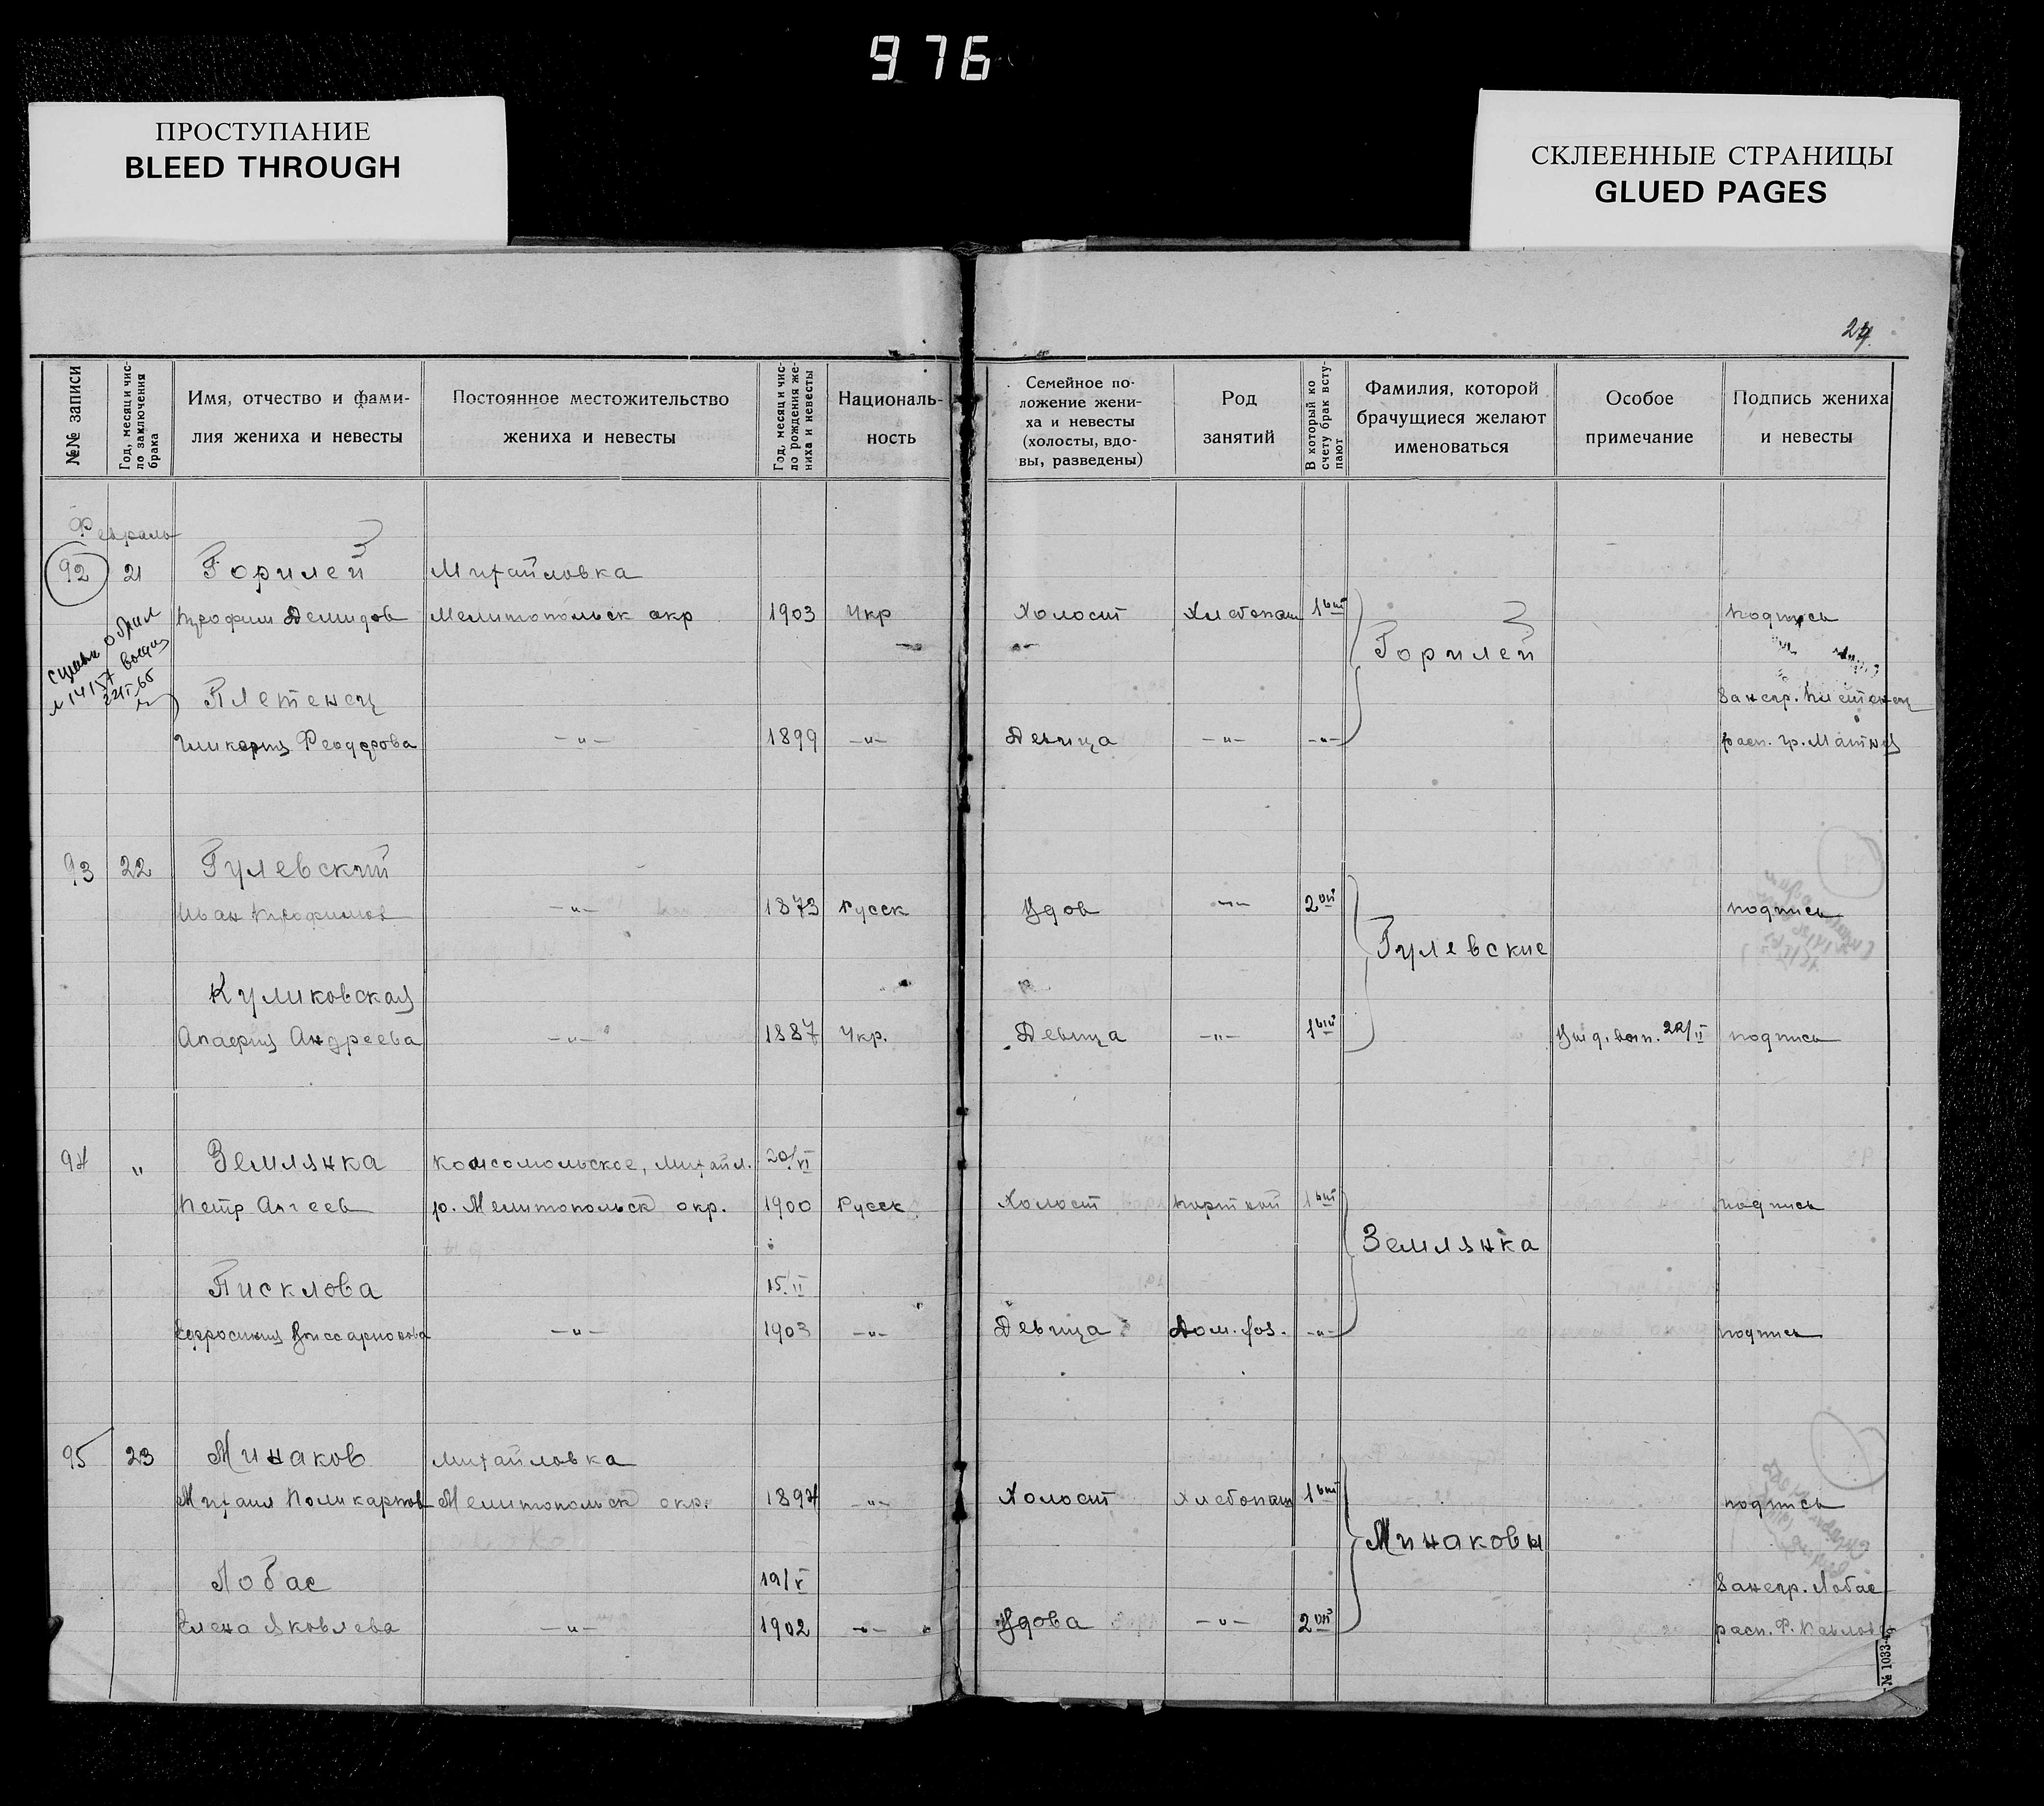 976
ПРОСТУПАНИЕ
BLEED THROUGH
СКЛЕЕННЫЕ СТРАНИЦЫ
GLUED PAGES
24
№№ записи
Год, месяц и чис-
ло заключения
брака
Имя, отчество и фами-
лия жениха и невесты
Постоянное местожительство
жениха и невесты
Год, месяц и чис-
ло рождения же-
ниха и невесты
Националь-
ность
Семейное по-
ложение жени-
ха и невесты
(холосты, вдо-
вы, разведены)
Род
занятий
В который ко
счету брак всту-
пают
Фамилия, которой
брачущиеся желают
именоваться
Особое
примечание
Подпись жениха
и невесты
Февраль
92 21 Горилей Михайловка
Трофим Демидов Мелитопольск окр 1903 Укр Холост Хлебопаш 1ый подпись
Горилей
Плетенец За негр. Плетенец
Гликерия Феодорова -"- 1899 -"- Девица -"- -"- расп. гр. Матвей
93 22 Гулевский
Иван Трофимов -"- 1873 Русск Удов -"- 2ой подпись
Гулевские
Куликовская
Андреева -"- 1887 Укр. Девица -"- 1ый 22/II подпись
94 " Землянка Комсомольское, Михайл. 20/VI
Петр Авгеев р. Мелитопольск окр. 1900 Русск Холост портной 1ый подпись
Землянка
Писклова 15/II
Ефросиния Виссарионова -"- 1903 -"- Девица Дом. хоз. -"- подпись
95 23 Минаков Михайловка
Михаил Поликарпов Мелитопольск окр. 1894 -"- Холост Хлебопаш 1ый подпись
Минаковы
Лобас 19/V За негр. Лобас
Елена Яковлева -"- 1902 -"- Удова -"- 2ой расп. Ф. Павлов
№ 1033-